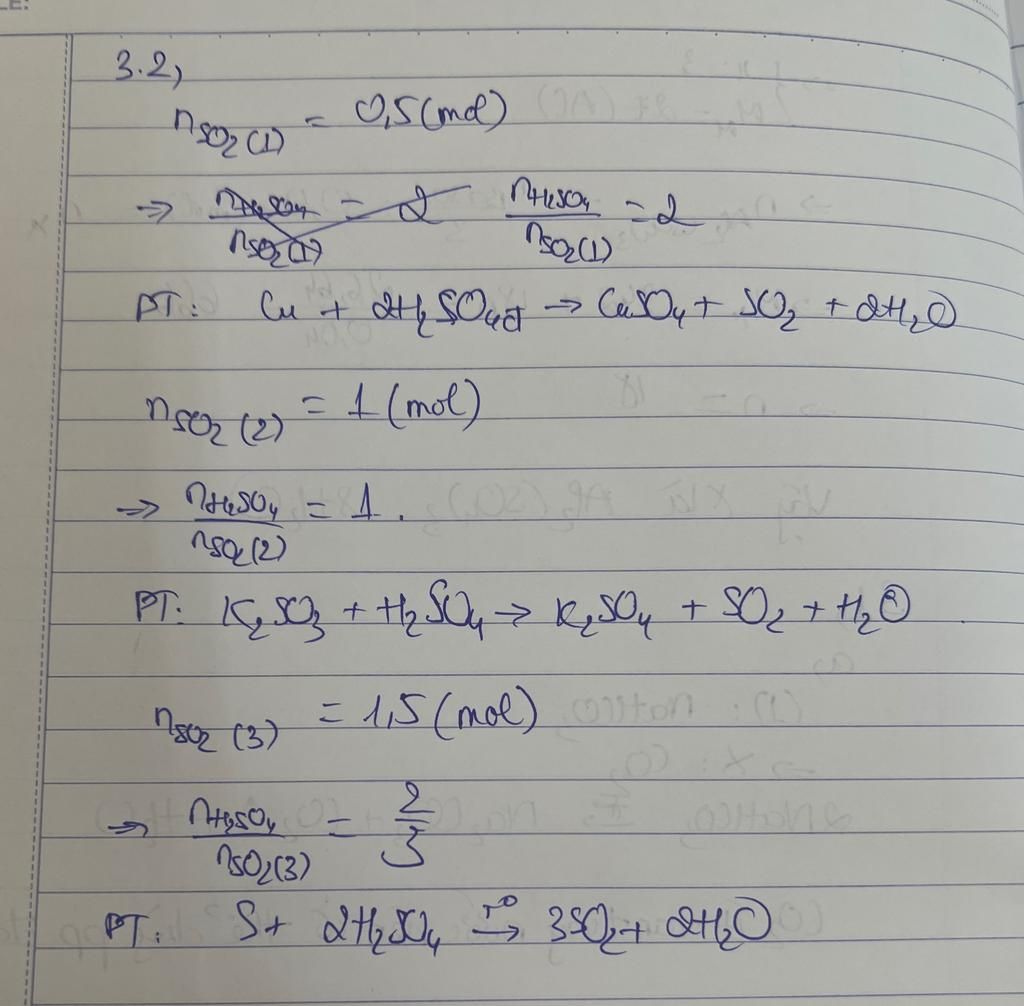 LE:
3.2,
nSO2(1) = 0,5 (mol)
=> nH2SO4/nSO2(1) = 2 nH2SO4/nSO2(1) = 2
PT: Cu + 2H2SO4đ → CuSO4 + SO2 + 2H2O
nSO2(2) = 1 (mol)
=> nH2SO4/nSO2(2) = 1.
PT: K2SO3 + H2SO4 → K2SO4 + SO2 + H2O
nSO2(3) = 1,5 (mol)
=> nH2SO4/nSO2(3) = 2/3
PT: S + 2H2SO4 –t°→ 3SO2 + 2H2O